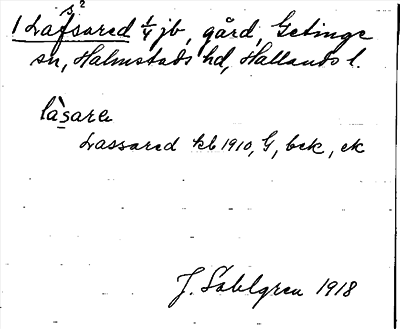 1 Lassared 1/4 jb, gård, Getinge
sn, Halmstads hd, Hallands l.
làsarɐ
Lassared kb 1910, G, bek, ek
J. Sahlgren 1918